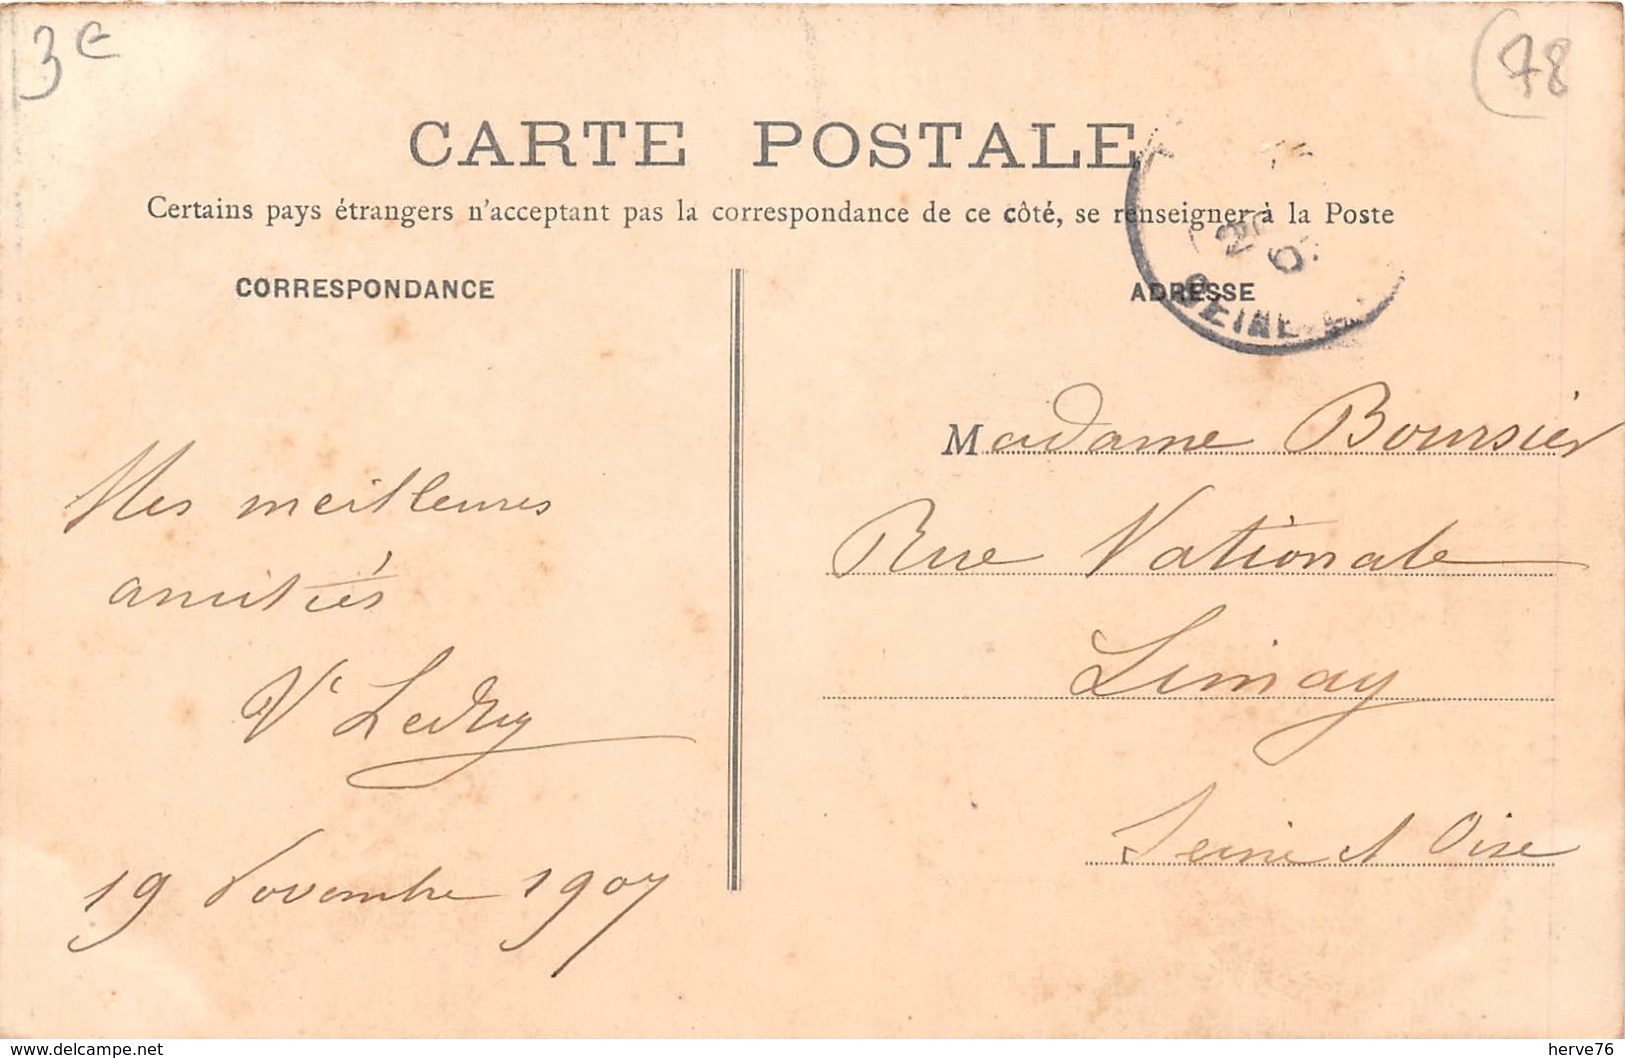 3 €
(78
CARTE POSTALE
Certains pays étrangers n'acceptant pas la correspondance de ce côté, se renseigner à la Poste
CORRESPONDANCE
Mes meilleures
amitiés
19 Novembre 1907
ADRESSE
SEINE
Madame Boursier
Rue Nationale
Limay
Seine et Oise
www.delcampe.net
herve76